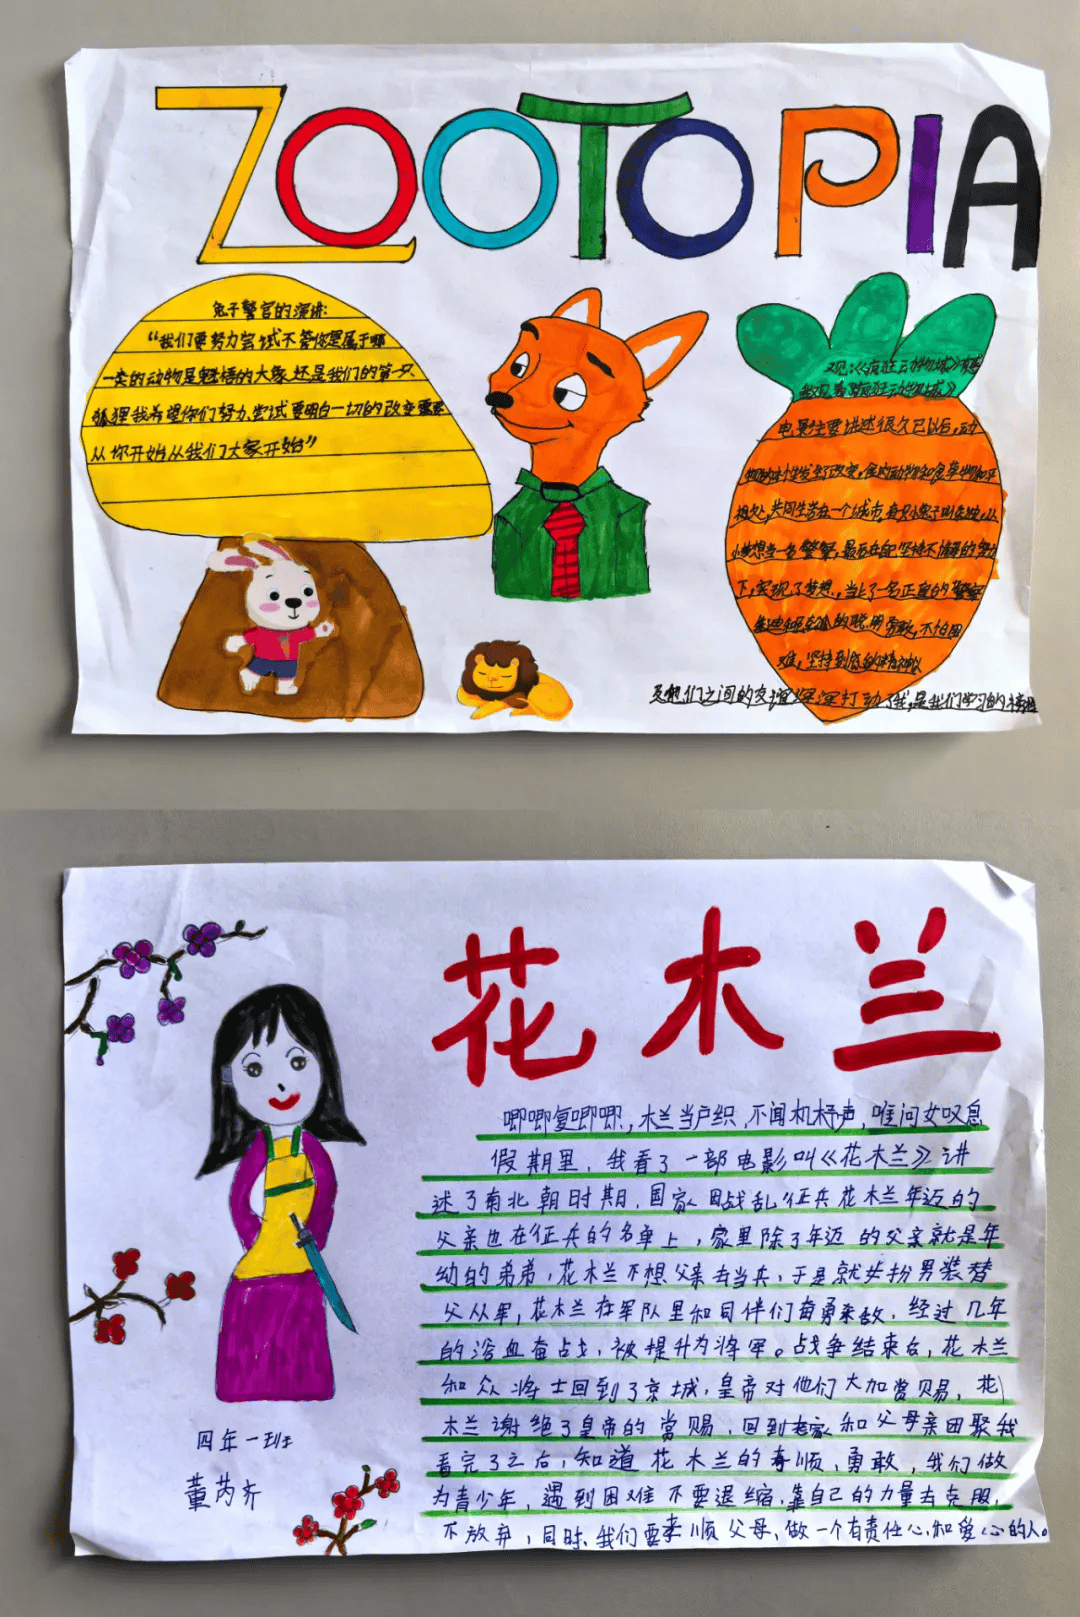 ZOOTOPIA
兔子警官的演讲:
“我们要努力尝试不管你是属于哪
一类的动物是魁梧的大象还是我们的第一只
狐狸我希望你们努力尝试要明白一切的改变需要
从你开始从我们大家开始”
观:《疯狂动物城》有感
我观看疯狂动物城》
电影主要讲述很久已以后,动
发生了改变,食肉动物和食草动物和平
相处,共同生活在一个城市,有只小兔子叫朱迪,从
小梦想当一名警察,最后在自己坚持不懈的努力
下,实现了梦想,当上了一名正直的警察
朱迪和的聪明勇敢,不怕困
难,坚持到底的精神以
及他们之间的友谊深深打动了我,是我们学习的榜样
花木兰
唧唧复唧唧,木兰当户织,不闻机杼声,唯问女叹息
假期里,我看了一部电影叫《花木兰》讲
述了南北朝时期,国家因战乱征兵花木兰年迈的
父亲也在征兵的名单上,家里除了年迈的父亲就是年
幼的弟弟,花木兰不想父亲去当兵,于是就女扮男装替
父从军,花木兰在军队里和同伴们奋勇杀敌,经过几年
的浴血奋战,被提升为将军。战争结束后,花木兰
和众将士回到了京城,皇帝对他们大加赏赐,花
木兰谢绝了皇帝的赏赐,回到老家和父母亲团聚我
看完了之后,知道花木兰的孝顺,勇敢,我们做
为青少年,遇到困难不要退缩,靠自己的力量去克服,
不放弃,同时,我们要孝顺父母,做一个有责任心和爱心的人。
四年一班
董芮齐